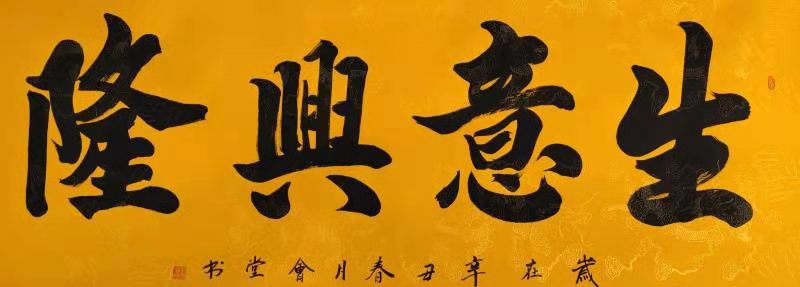 生意興隆
歲在辛丑春月會堂书